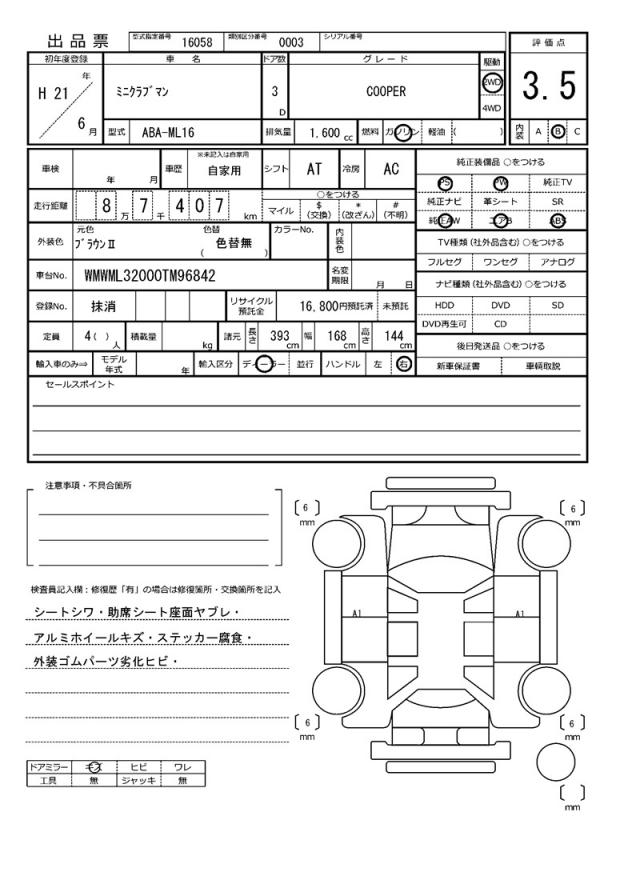 出品票 型式指定番号 16058 類別区分番号 0003 シリアル番号
評価点
3.5
内装 A B C
初年度登録 車名 ドア数 グレード 駆動
H 21 年 6 月 ミニクラブマン 3 D COOPER 2WD 4WD
型式 ABA-ML16 排気量 1.600 cc 燃料 ガソリン 軽油 ( )
車検 年 月 車歴 ※未記入は自家用 自家用 シフト AT 冷房 AC
走行距離 8 万 7 千 4 0 7 km ○をつける マイル $ (交換) * (改ざん) # (不明)
外装色 元色 ブラウンⅡ 色替 ( 色替無 ) カラーNo. 内装色
車台No. WMWML32000TM96842 名変期限 月 日
登録No. 抹消 リサイクル預託金 16,800円預託済 未預託
定員 4( ) 人 積載量 kg 諸元 長さ 393 cm 幅 168 cm 高さ 144 cm
輸入車のみ⇒ モデル年式 年 輸入区分 ディーラー 並行 ハンドル 左 右
純正装備品 ○をつける
PS PW 純正TV
純正ナビ 革シート SR
純正AW エアB ABS
TV種類 (社外品含む) ○をつける
フルセグ ワンセグ アナログ
ナビ種類 (社外品含む) ○をつける
HDD DVD SD
DVD再生可 CD
後日発送品 ○をつける
新車保証書 車輌取説
セールスポイント
注意事項・不具合箇所
検査員記入欄：修復歴「有」の場合は修復箇所・交換箇所を記入
シートシワ・助席シート座面ヤブレ・
アルミホイールキズ・ステッカー腐食・
外装ゴムパーツ劣化ヒビ・
ドアミラー キズ ヒビ ワレ
工具 無 ジャッキ 無
〔 6 〕 mm 〔 6 〕 mm
A1 A1
〔 6 〕 mm 〔 6 〕 mm
〔 〕 mm